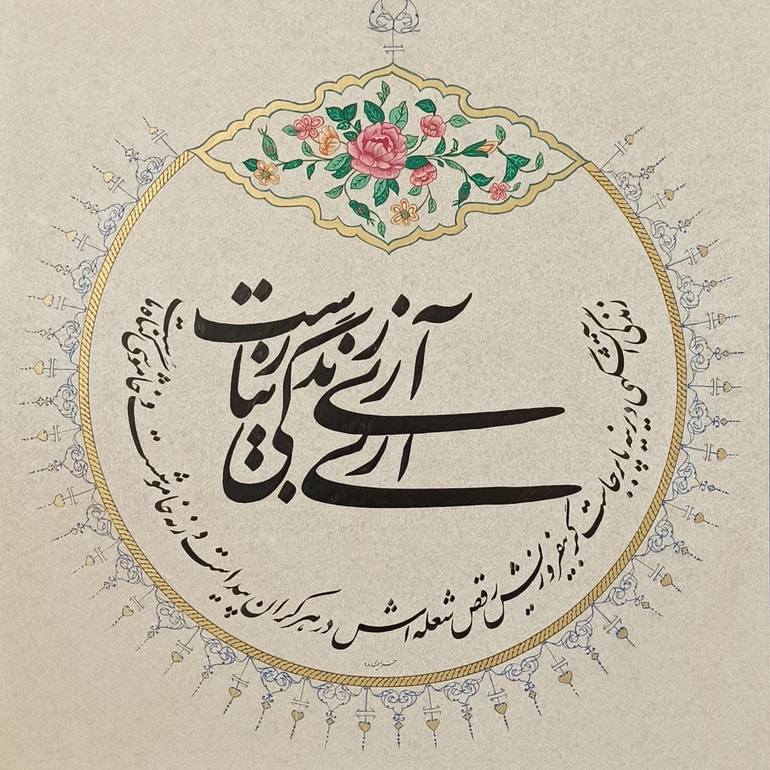 آری آری زندگی زیباست
زندگی آتشگهی دیرینه پابرجاست گر بیفروزیش رقص شعله اش در هر کران پیداست ورنه خاموشست و خاموشی گناه ماست